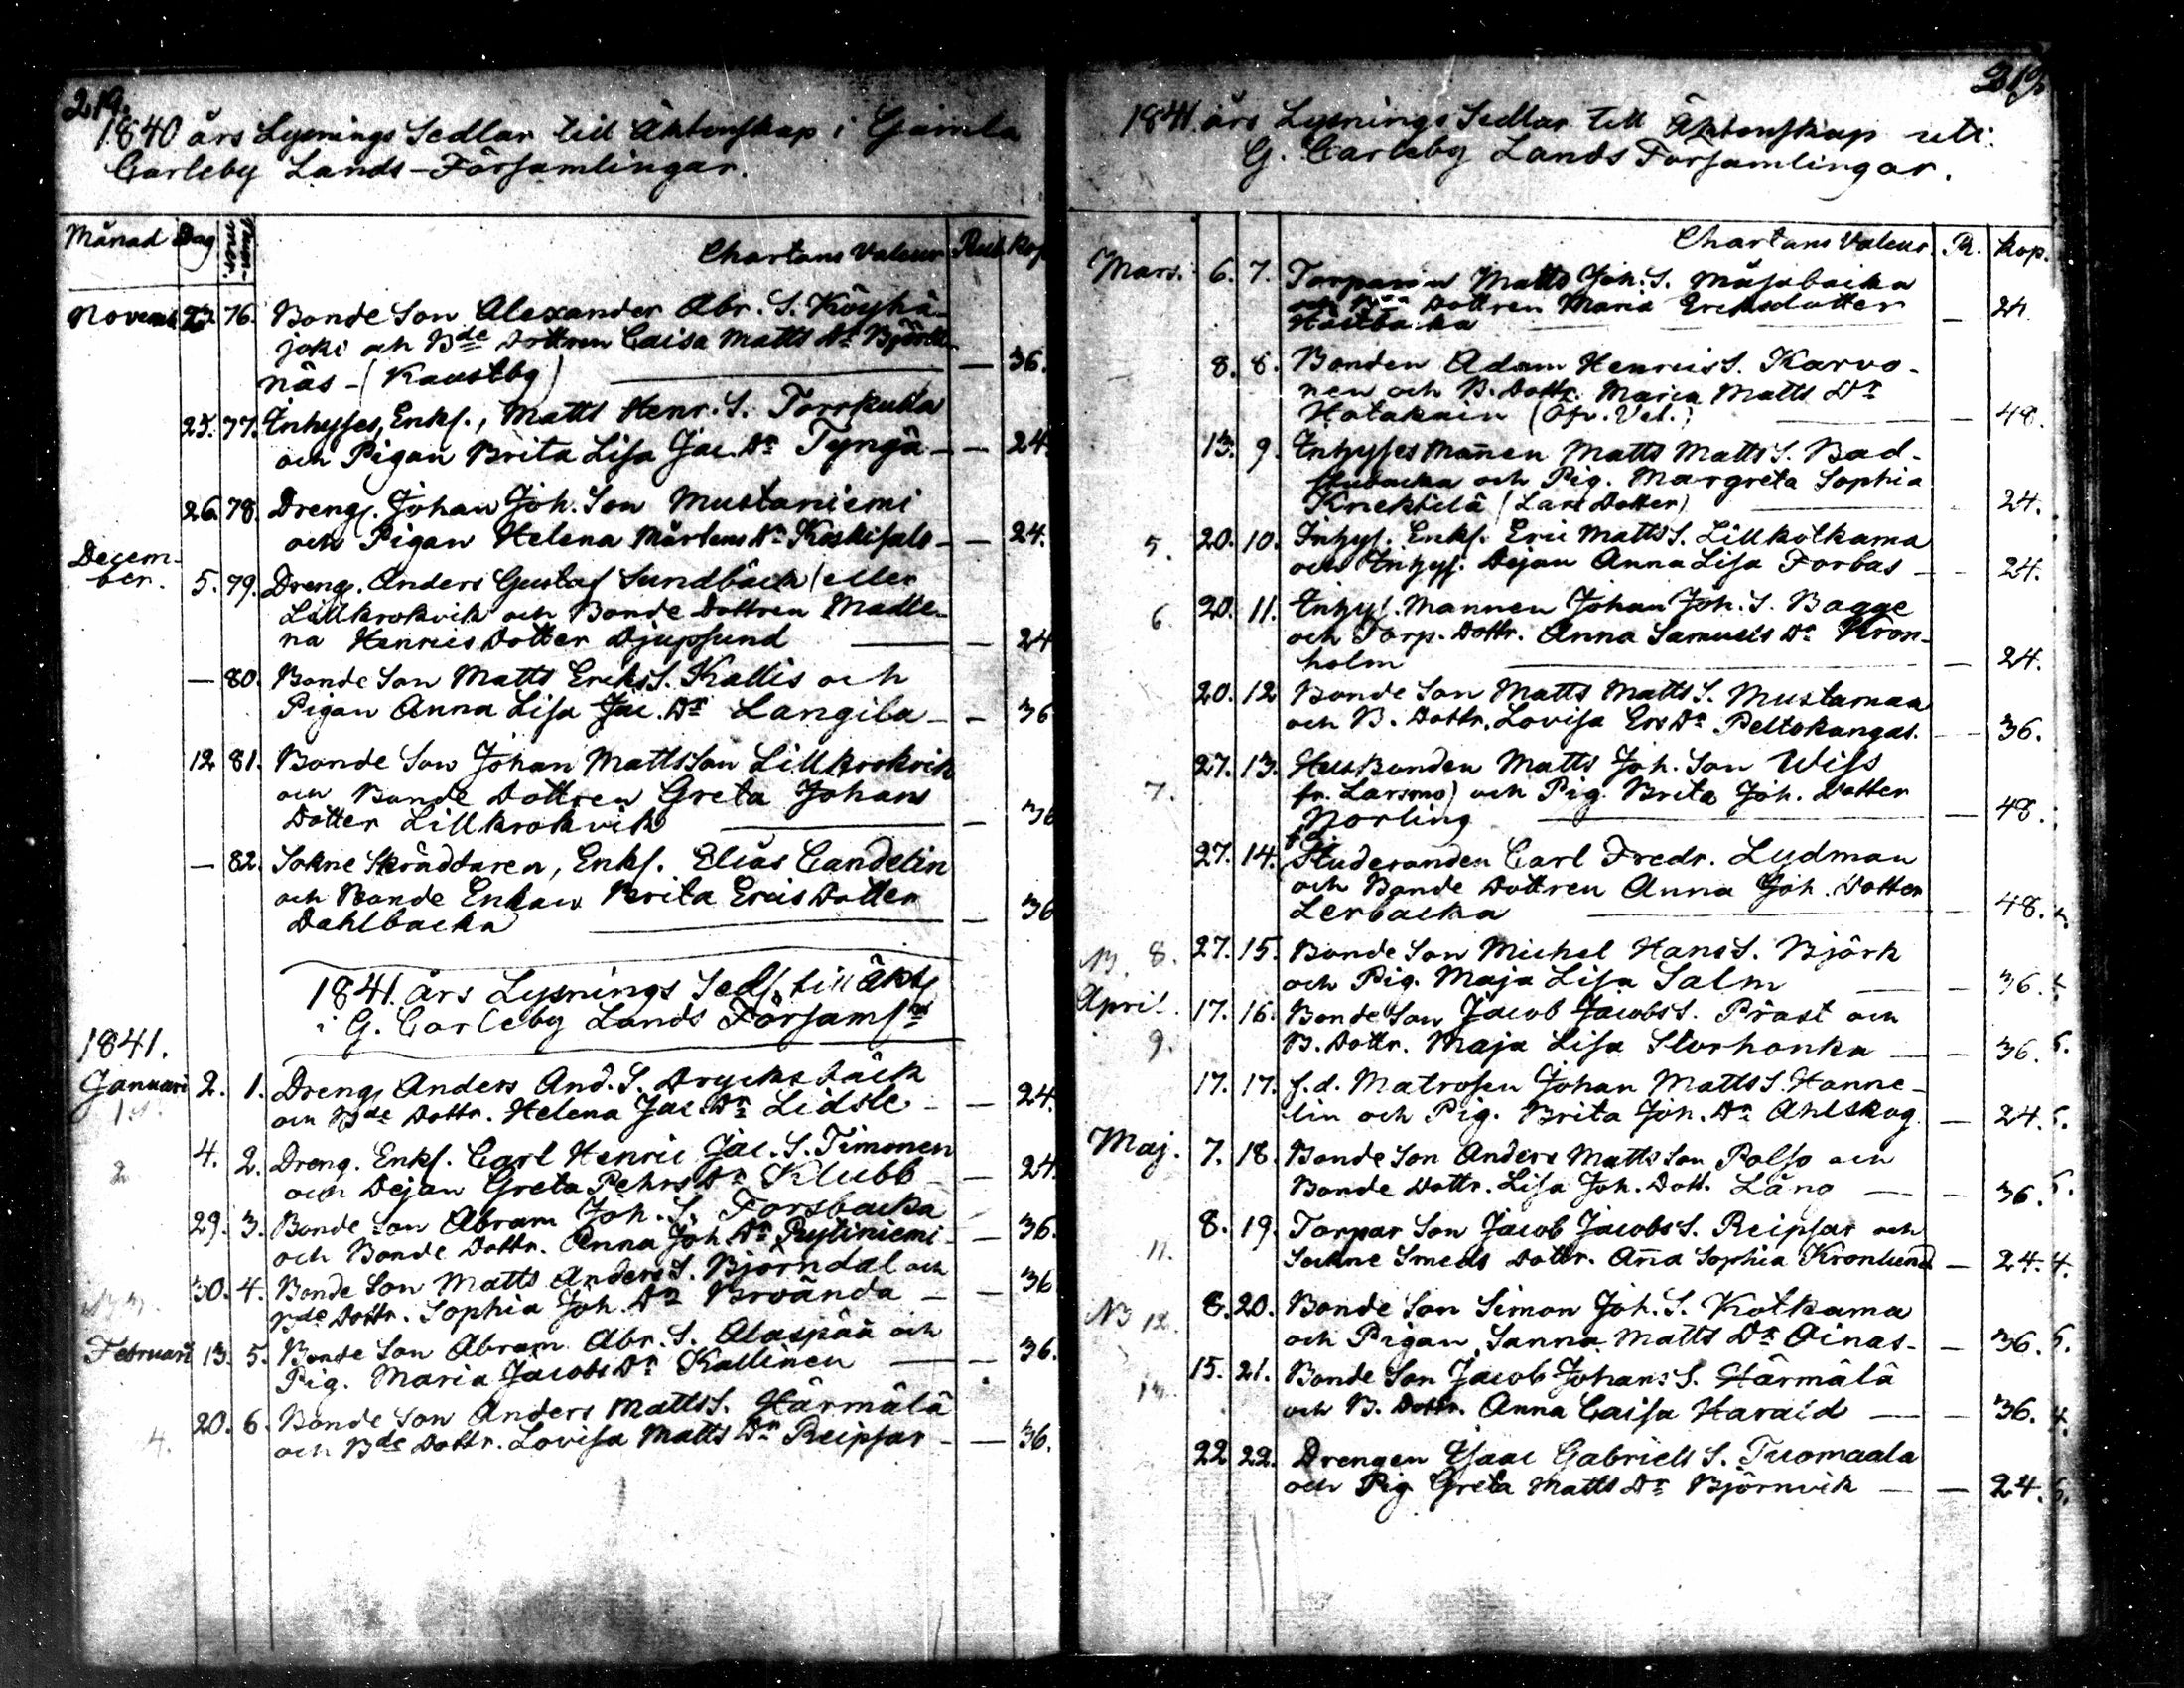 219.
1840 års Lysnings Sedlar till Äktenskap i Gamla
Carleby Lands-Församlingar.
Månad Dag Num-mer. Chartans Valeur Rub. Kop.
Novemb. 23. 76. Bonde Son Alexander Abr. S. Köyhä-
joki och Bde Dottren Caisa Matts Dr Björk-
näs - (Kaustby) — 36.
25. 77. Inhyses, Enkl., Matts Henr. S. Torrkulla
och Pigan Brita Lisa Jac. Dr Tyngä — 24.
26. 78. Dreng. Johan Joh. Son Mustaniemi
och Pigan Helena Mårtens Dr Koskisalo — 24.
Decem-
ber. 5. 79. Dreng. Anders Gustaf Sundbäck (eller
Lillkrokvik och Bonde Dottren Madle-
na Henrics Dotter Djupsund — 24
— 80. Bonde Son Matts Ericks S. Kallis och
Pigan Anna Lisa Jac. Dr Langila — 36
12 81. Bonde Son Johan Mattsson Lillkrokvik
och Bonde Dottren Greta Johans
Dotter Lillkrokvik — 36
— 82. Sokne Skräddaren, Enkl. Elias Candelin
och Bonde Enkan Brita Erics Dotter
Dahlbacka — 36
1841. års Lysnings Sedl. till Äkts.
i G. Carleby Lands Församlr
1841.
Januari 2. 1. Dreng Anders And. S. Drycksbäck
och Bde Dottr. Helena Jac. Dr Lidsle — 24.
1.
4. 2. Dreng. Enkl. Carl Henric Jac. S. Timonen
2
och Dejan Greta Pehrs Dr Klubb — 24.
29. 3. Bonde Son Abram Joh. S. Forsbacka
och Bonde Dottr. Anna Joh. Dr Rytiniemi — 36.
30. 4. Bonde Son Matts Anders S. Björndal och
Bde Dottr. Sophia Joh. Dr Broända — 36
Februari 13. 5. Bonde Son Abram Abr. S. Alaspää och
Pig. Maria Jacobs Dr Kallinen — 36.
20. 6. Bonde Son Anders Matts S. Härmälä
4. och Bde Dottr. Lovisa Matts Dr Reipsar — 36.
219.
1841. års Lysnings Sedlar till Äktenskap uti
G. Carleby Lands Församlingar.
Chartans Valeur R. Kop.
Mars. 6. 7. Torparen Matts Joh. S. Måsabacka
och Dottren Maria Ericksdotter
Hästbacka — 24
8. 8. Bonden Adam Henrics S. Karvo-
nen och B. Dottr. Maria Matts Dr
Hotakain (Öfv. Vet.) — 48.
13. 9. Inhyses Mannen Matts Matts S. Bad-
stubacka och Pig. Margreta Sophia
Knektilä (Lars Dotter) — 24.
5. 20. 10. Inhys. Enkl. Eric Matts S. Lillkotkama
och Inhys. Dejan Anna Lisa Forbas — 24.
6. 20. 11. Inhys. Mannen Johan Joh. S. Bagge
och Torp. Dottr. Anna Samuels Dr Kron-
holm — 24.
20. 12 Bonde Son Matts Matts S. Mustamaa
och B. Dottr. Lovisa Ers Dr Peltokangas. — 36.
27. 13. Husbonden Matts Joh. Son Wiss
7. fr. Larsmo) och Pig. Brita Joh. Dotter
Norling — 48.
27. 14. f.d. Studeranden Carl Fredr. Lydman
och Bonde Dottren Anna Joh. Dotter
Lerbacka — 48.
N. 8. 27. 15. Bonde Son Michel Hans S. Björk
och Pig. Maja Lisa Salm — 36.
April. 17. 16. Bonde Son Jacob Jacobs S. Präst och
9. B. Dottr. Maja Lisa Storhonka — 36. 5.
17. 17. f. d. Matrosen Johan Matts S. Hanne-
lin och Pig. Brita Joh. Dr Ahlskog. — 24. 5.
Maj. 7. 18. Bonde Son Anders Matts Son Palso och
Bonde Dottr. Lisa Joh. Dott. Lång — 36. 5.
8. 19. Torpar Son Jacob Jacobs S. Reipsar och
11. Sockne Smeds Dottr. Anna Sophia Kronlund — 24. 4.
NB 12. 8. 20. Bonde Son Simon Joh. S. Kotkama
och Pigan Sanna Matts Dr Oinas — 36. 5.
15. 21. Bonde Son Jacob Johans S. Härmälä
13. och B. Dottr. Anna Caisa Harald — 36. 4.
22 22. Drengen Isaac Gabriels S. Tuomaala
och Pig Greta Matts Dr Björnvik — 24. 5.